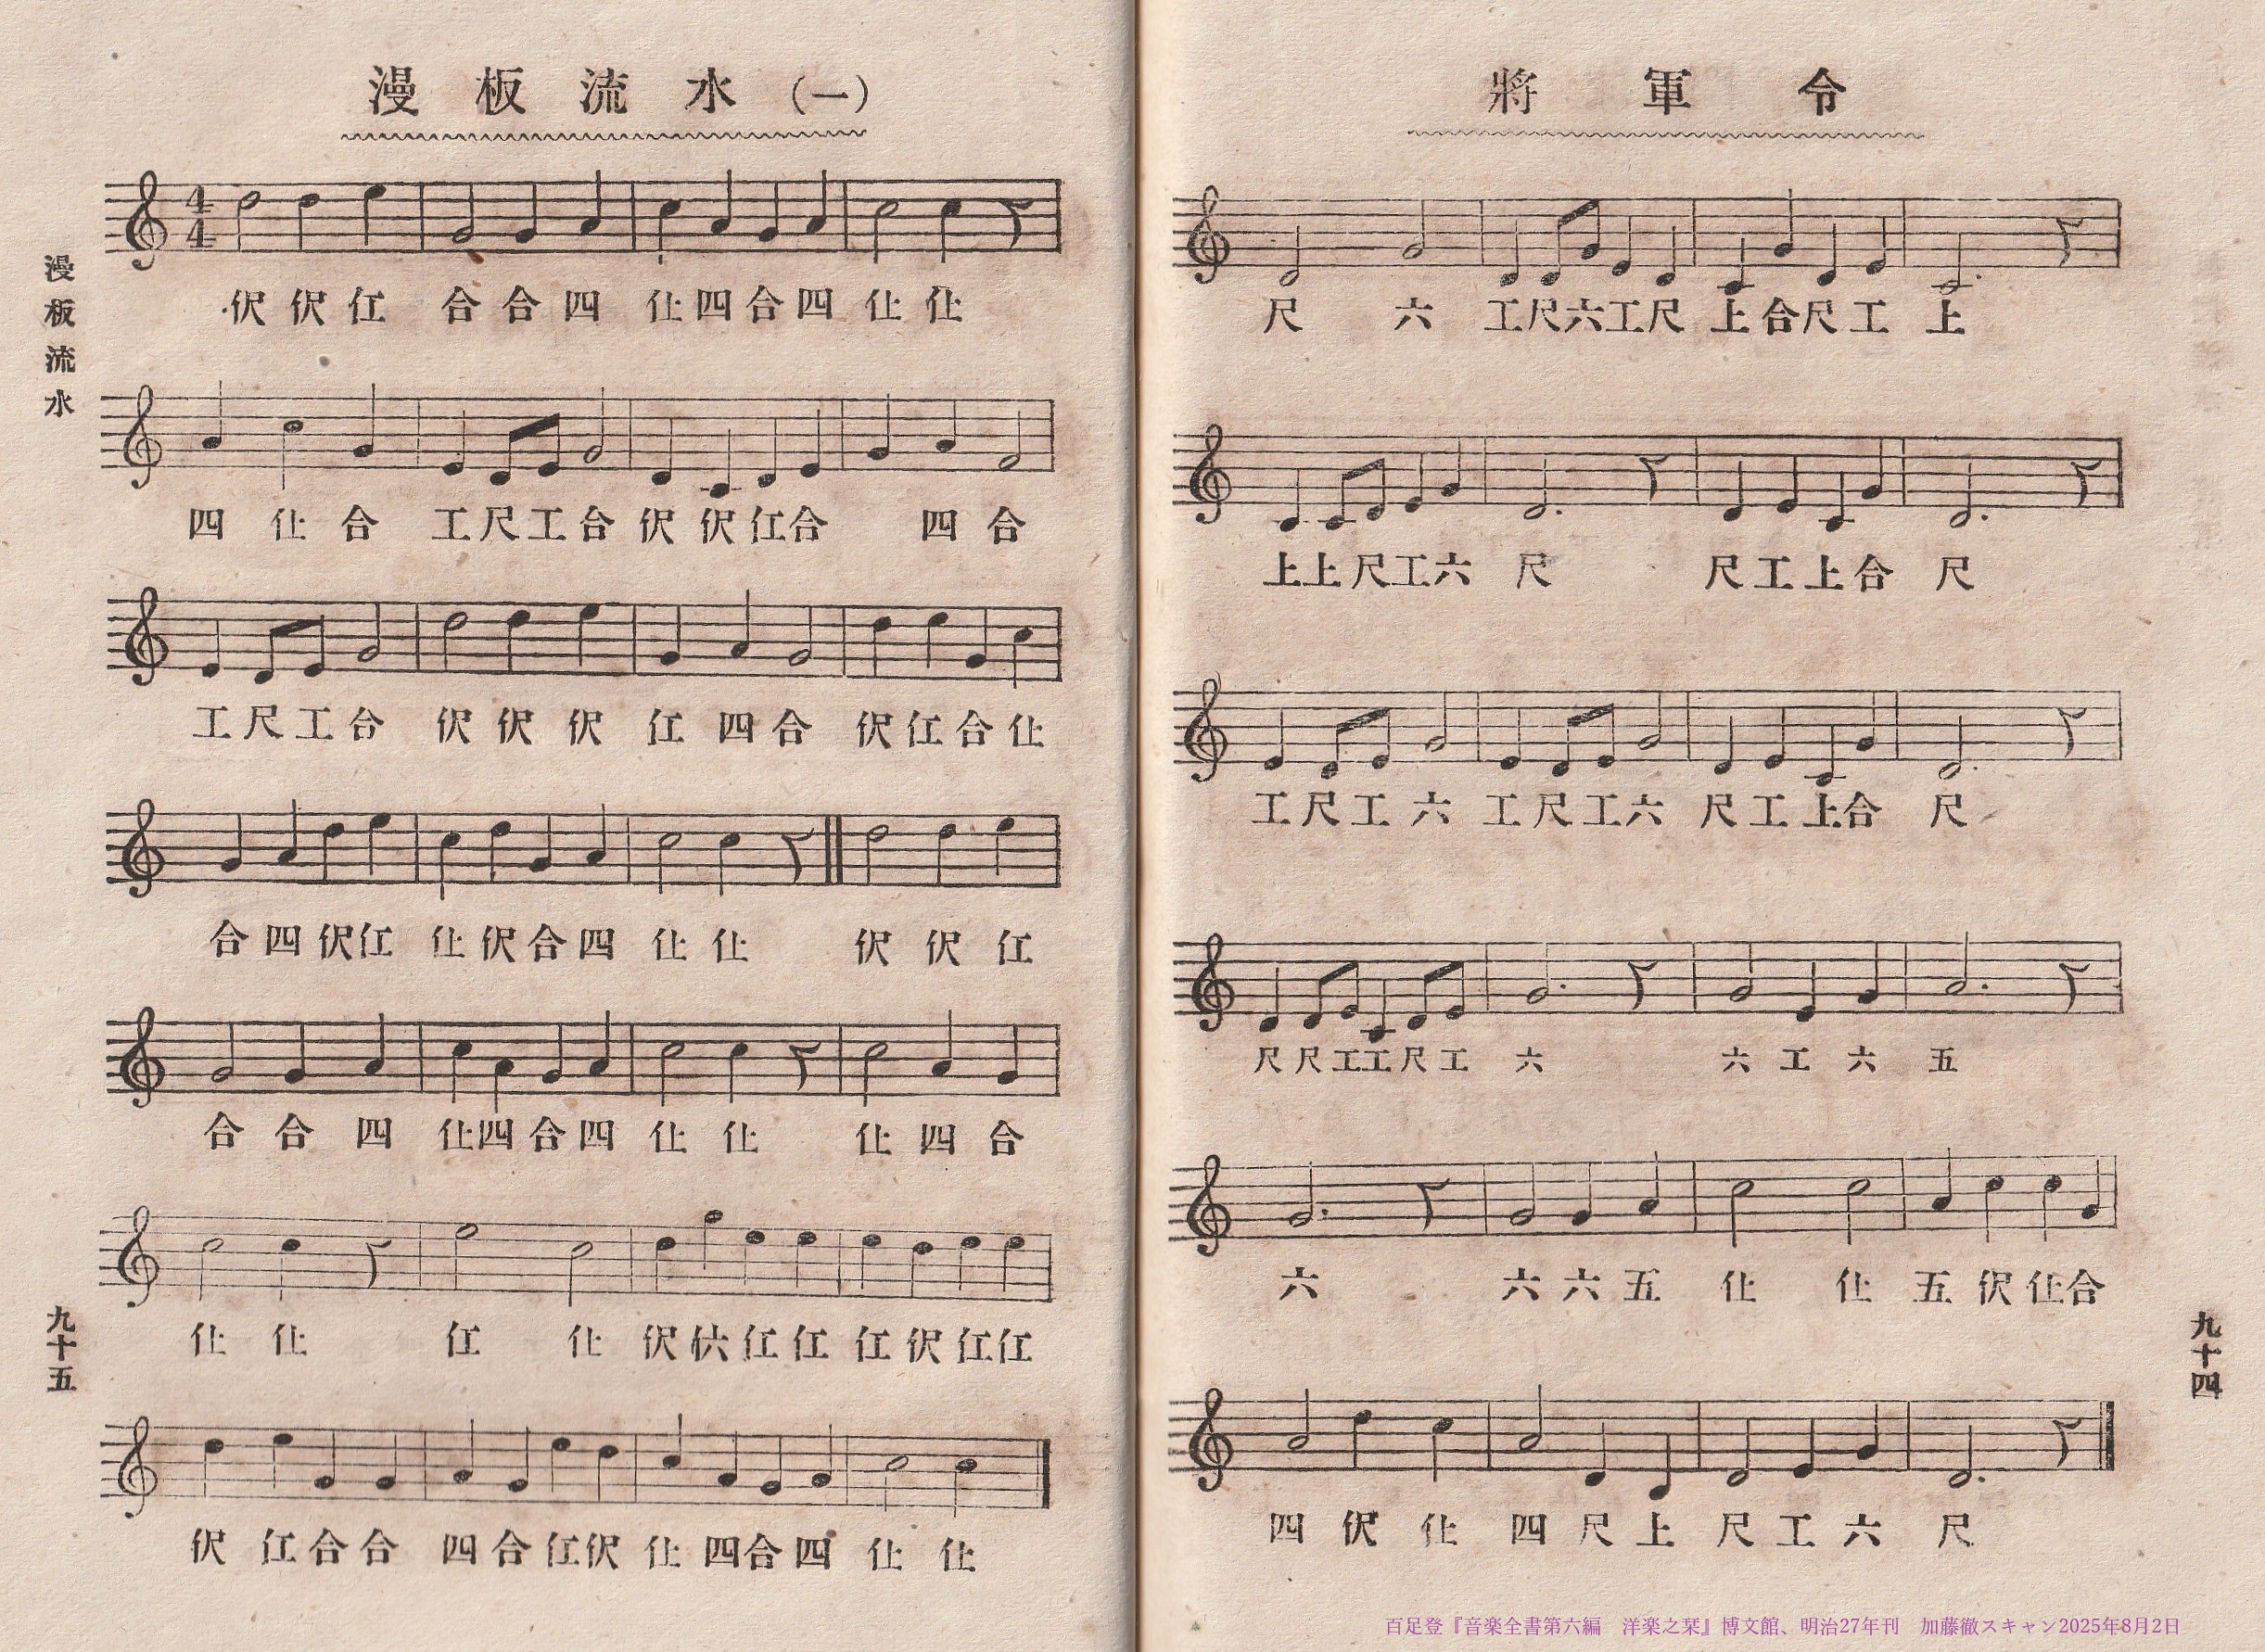 將軍令
尺 六 工尺六工尺 上合尺工 上
上上尺工六 尺 尺工上合 尺
工尺工六 工尺工六 尺工上合 尺
尺尺工工尺工 六 六工六 五
六 六六五 仩 仩 五伬仩合
四伬仩 四尺上 尺工六 尺
九十四
漫板流水(一)
4
4
伬伬仜 合合四 仩四合四 仩仩
四仩合 工尺工合 伬伬仜合 四合
工尺工合 伬伬伬 仜四合 伬仜合仩
合四伬仜 仩伬合四 仩仩 伬伬仜
合合四 仩四合四 仩仩 仩四合
仩仩 仜仩 伬𠆾仜仜 仜伬仜仜
伬仜合合 四合仜伬 仩四合四 仩仩
漫板流水
九十五
百足登『音楽全書第六編 洋楽之栞』博文館、明治27年刊 加藤徹スキャン2025年8月2日